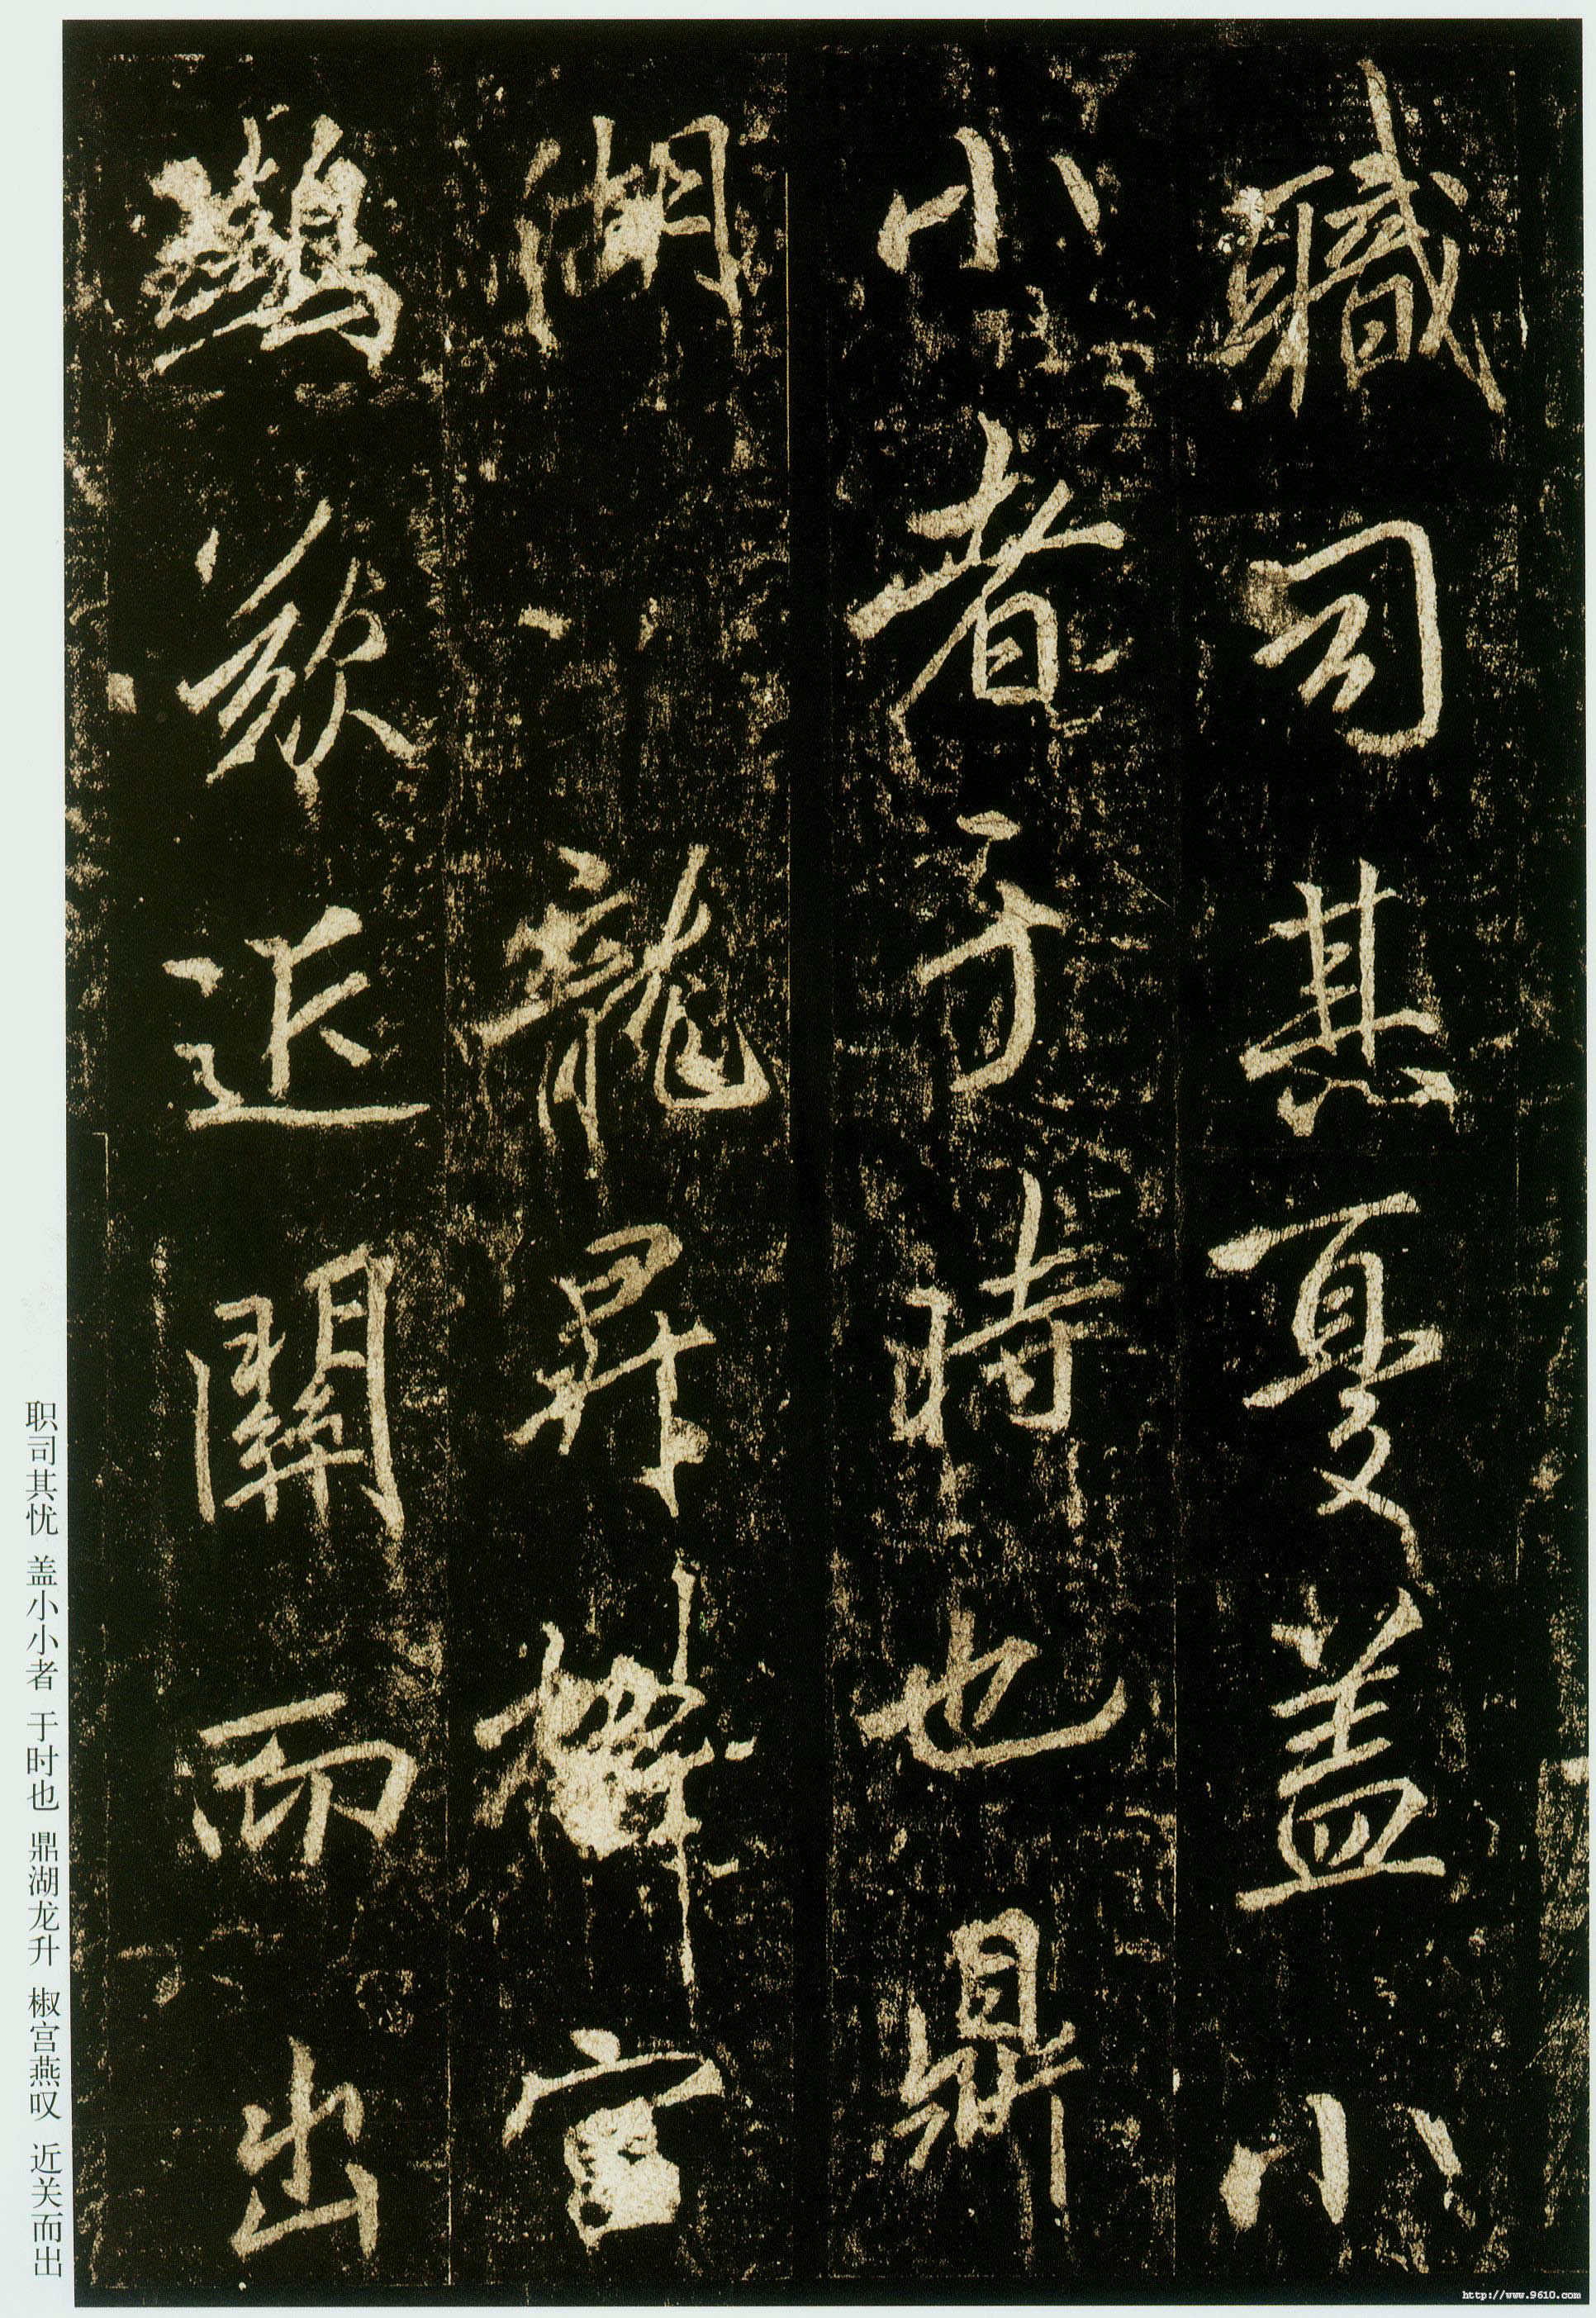 職司其憂盖小
小者于時也鼎
湖龍昇宫
鷰歎近關而出
职司其忧 盖小小者 于时也 鼎湖龙升 椒宫燕叹 近关而出
http://www.9610.com